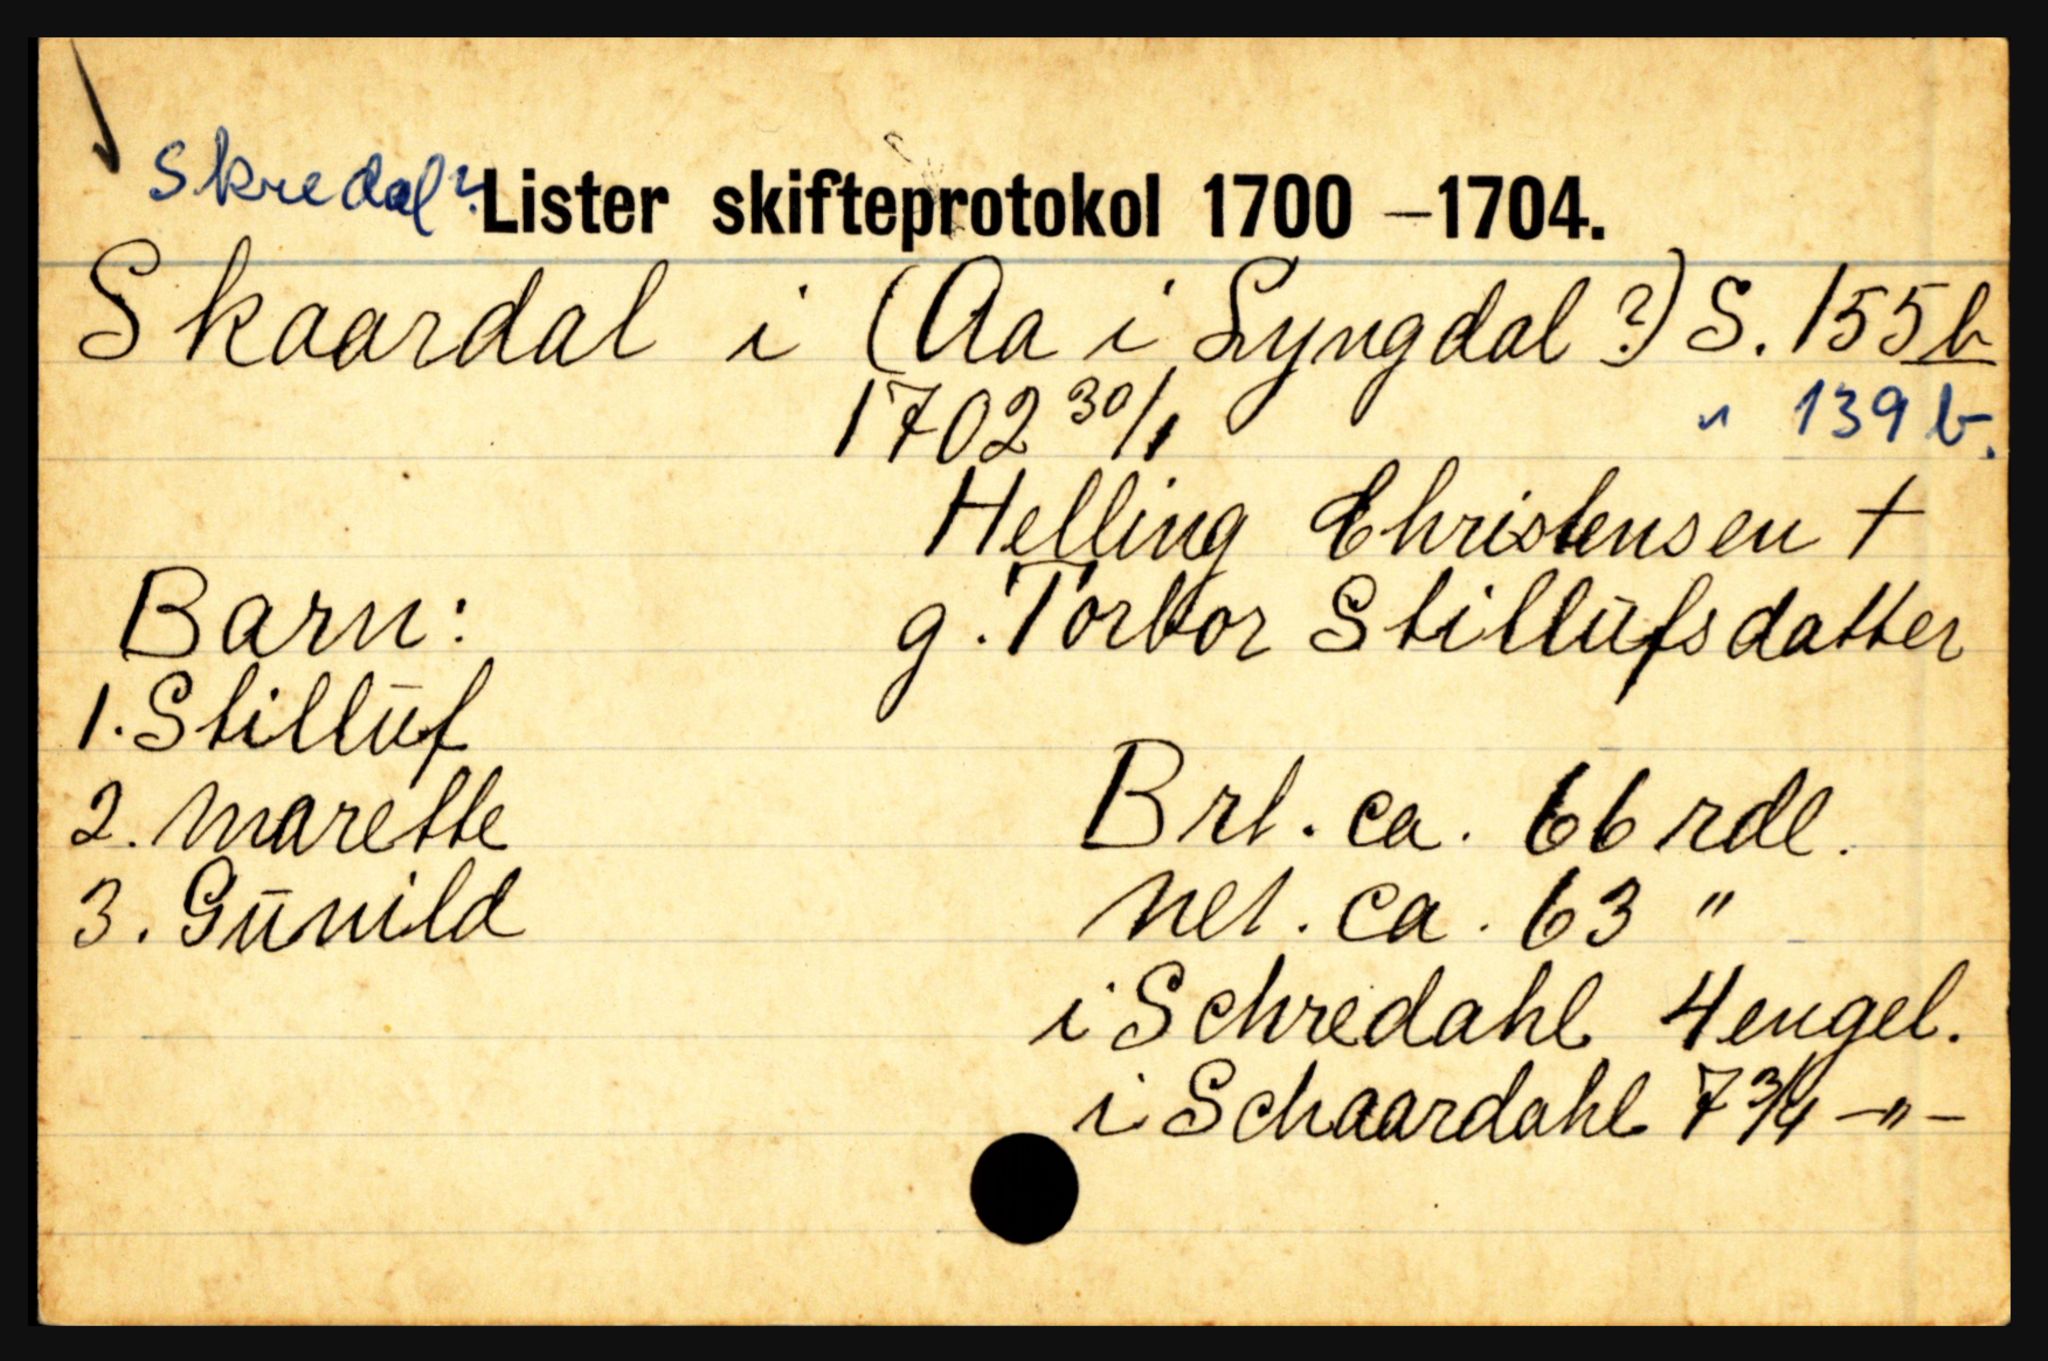 Skredal?
Lister skifteprotokol 1700 –1704.
Skaardal i (Aa i Lyngdal ?) S. 155b
1702 30/1 " 139 b.
Helling Christensen †
Barn: g. Torbor Stillufsdatter
1. Stilluf
2. Marette Brt. ca. 66 rdl.
3. Gunild Net. ca. 63 "
i Schredahl 4 engel.
i Schaardahl 7 3/4 –"–